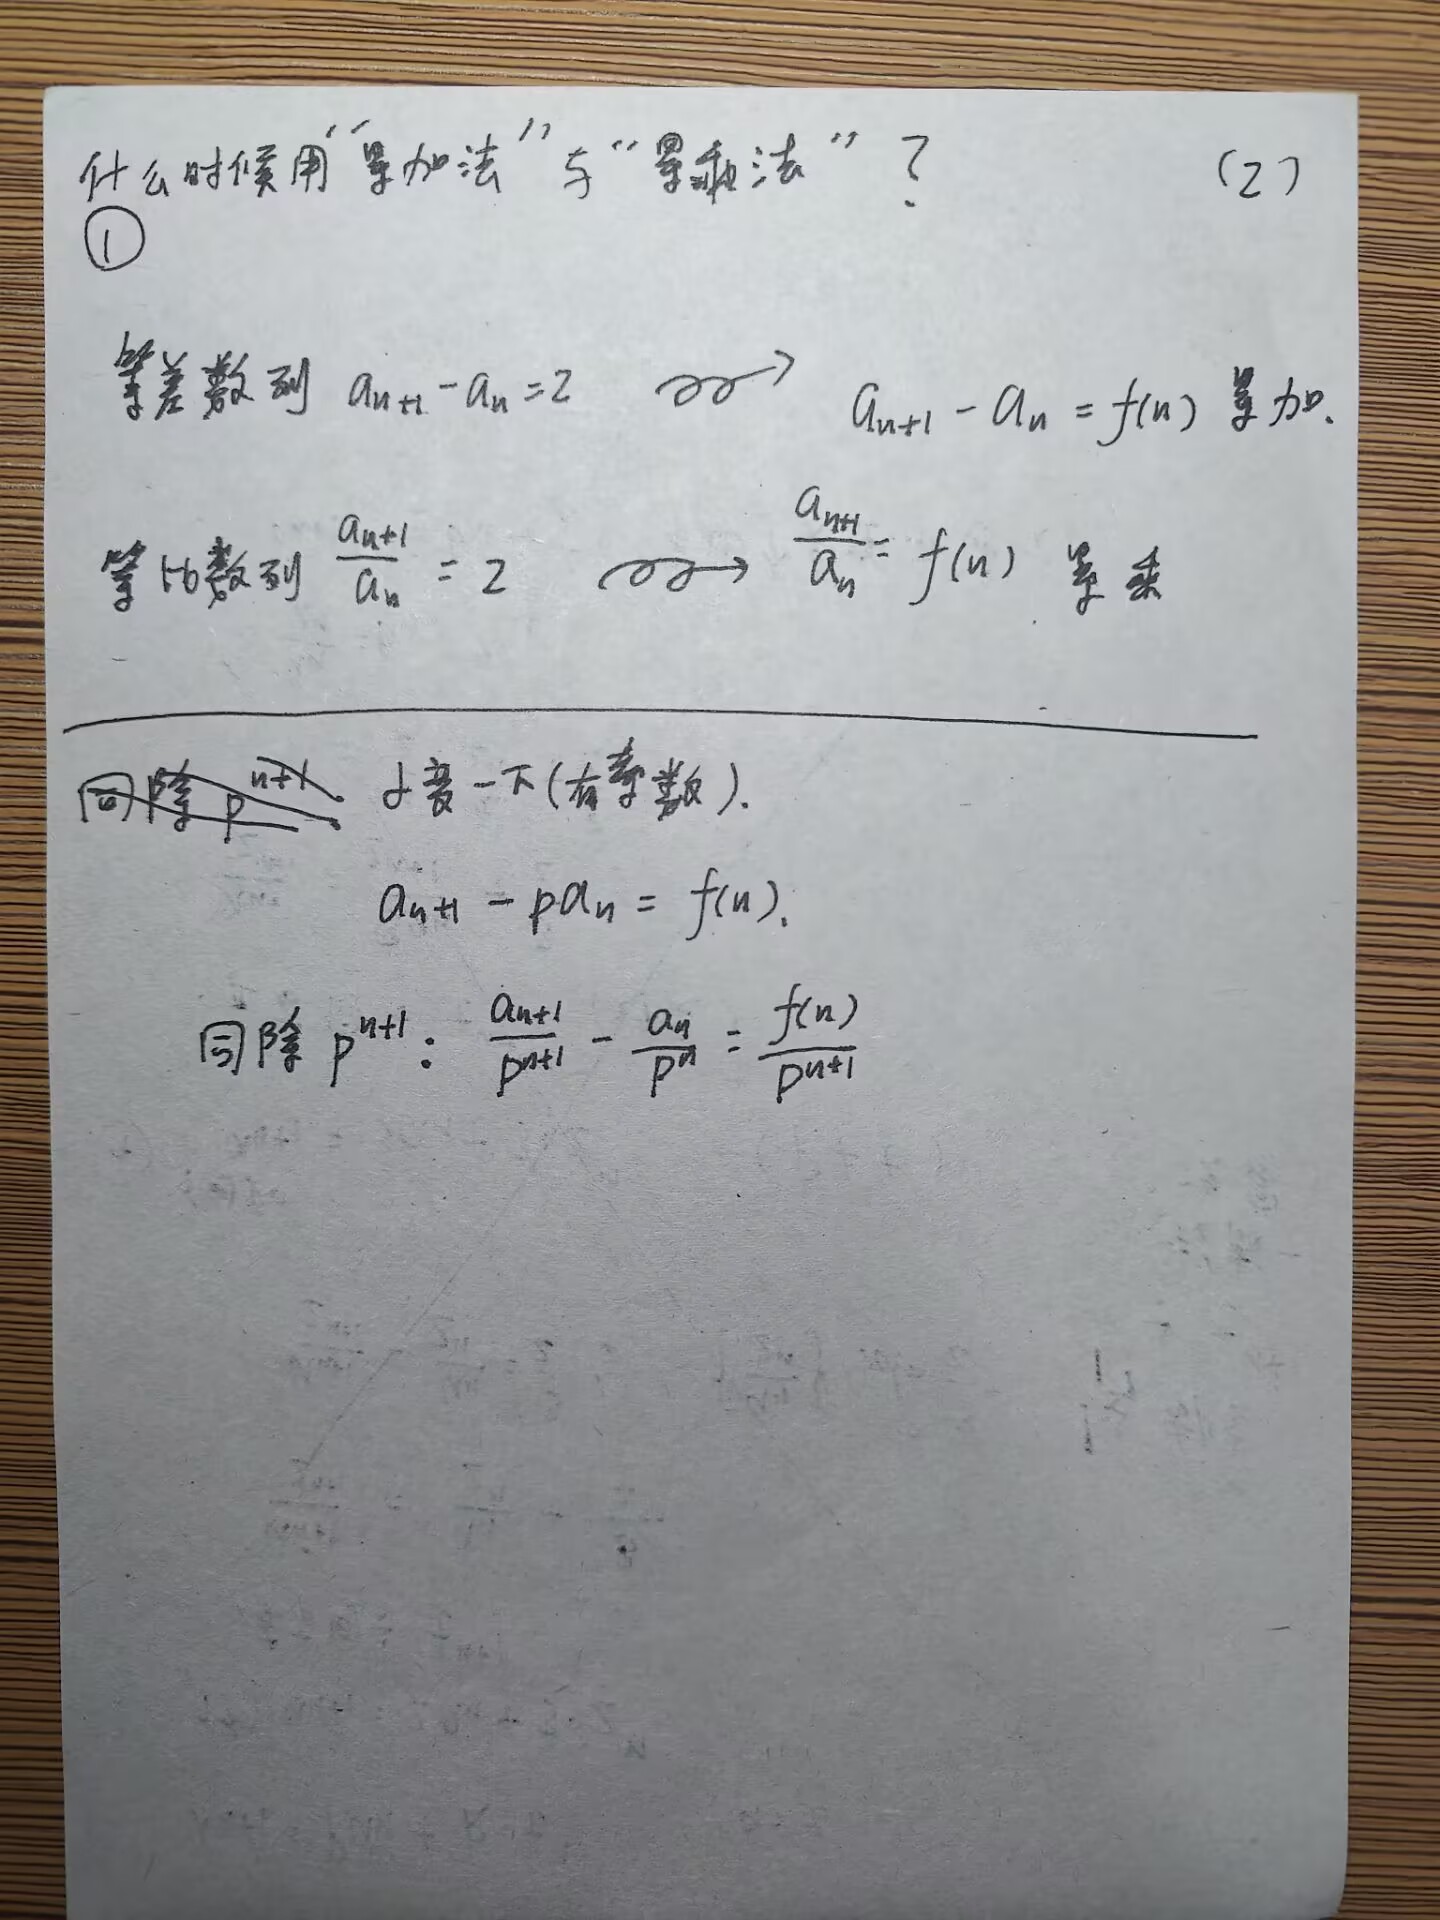 什么时候用“累加法”与“累乘法”? (2)
①
等差数列 aₙ₊₁ - aₙ = 2 → aₙ₊₁ - aₙ = f(n) 累加.
等比数列 aₙ₊₁/aₙ = 2 → aₙ₊₁/aₙ = f(n) 累乘
同除 pⁿ⁺¹ 变一下(有系数).
aₙ₊₁ - paₙ = f(n).
同除 pⁿ⁺¹: aₙ₊₁/pⁿ⁺¹ - aₙ/pⁿ = f(n)/pⁿ⁺¹